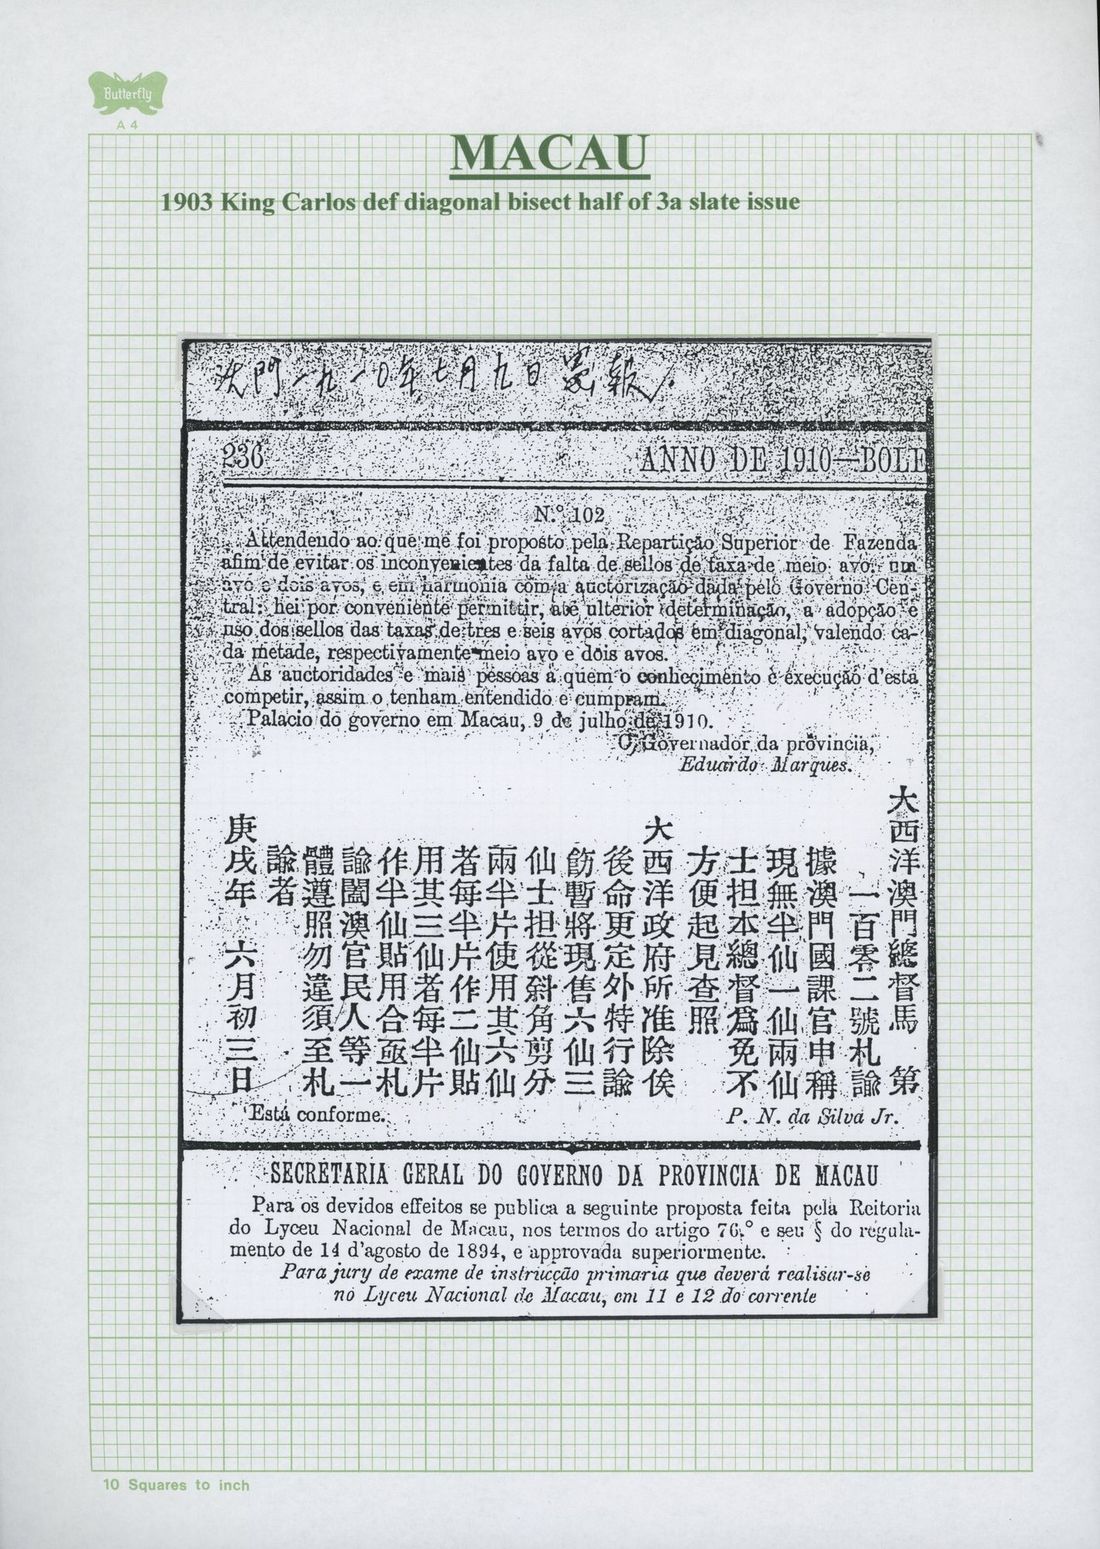 Butterfly
A 4
MACAU
1903 King Carlos def diagonal bisect half of 3a slate issue
澳門一九一0年七月九日憲報
236
ANNO DE 1910—BOLE
N.º 102
Attendendo ao que me foi proposto pela Repartição Superior de Fazenda
afim de evitar os inconvenientes da falta de sellos de taxa de meio avo, um
avo e dois avos, e em harmonia com a auctorização dada pelo Governo Cen-
tral: hei por conveniente permittir, até ulterior determinação, a adopção e
uso dos sellos das taxas de tres e seis avos cortados em diagonal, valendo ca-
da metade, respectivamente meio avo e dois avos.
As auctoridades e mais pessoas a quem o conhecimento e execução d'esta
competir, assim o tenham entendido e cumpram.
Palacio do governo em Macau, 9 de julho de 1910.
O Governador da provincia,
Eduardo Marques.
大西洋澳門總督馬 第
一百零二號札諭
據澳門國課官申稱
現無半仙一仙兩仙
士担本總督爲免不
方便起見查照
大西洋政府所准除俟
後命更定外特行諭
飭暫將現售六仙三
仙士担從斜角剪分
兩半片使用其六仙
者每半片作二仙貼
用其三仙者每半片
作半仙貼用合亟札
諭闔澳官民人等一
體遵照勿違須至札
諭者
庚戌年 六月初三日
Está conforme.
P. N. da Silva Jr.
SECRETARIA GERAL DO GOVERNO DA PROVINCIA DE MACAU
Para os devidos effeitos se publica a seguinte proposta feita pela Reitoria
do Lyceu Nacional de Macau, nos termos do artigo 76.º e seu § do regula-
mento de 14 d'agosto de 1894, e approvada superiormente.
Para jury de exame de instrucção primaria que deverá realisar-se
no Lyceu Nacional de Macau, em 11 e 12 do corrente
10 Squares to inch